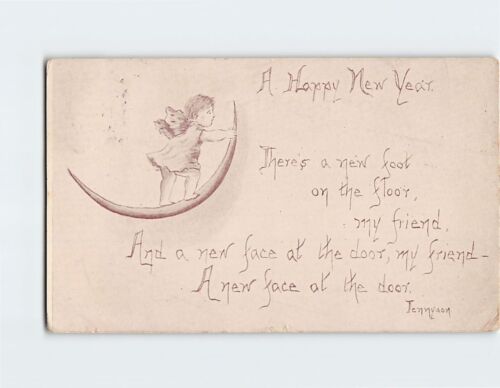 A Happy New Year.
There's a new foot
on the floor,
my friend,
And a new face at the door, my friend-
A new face at the door.
Tennyson